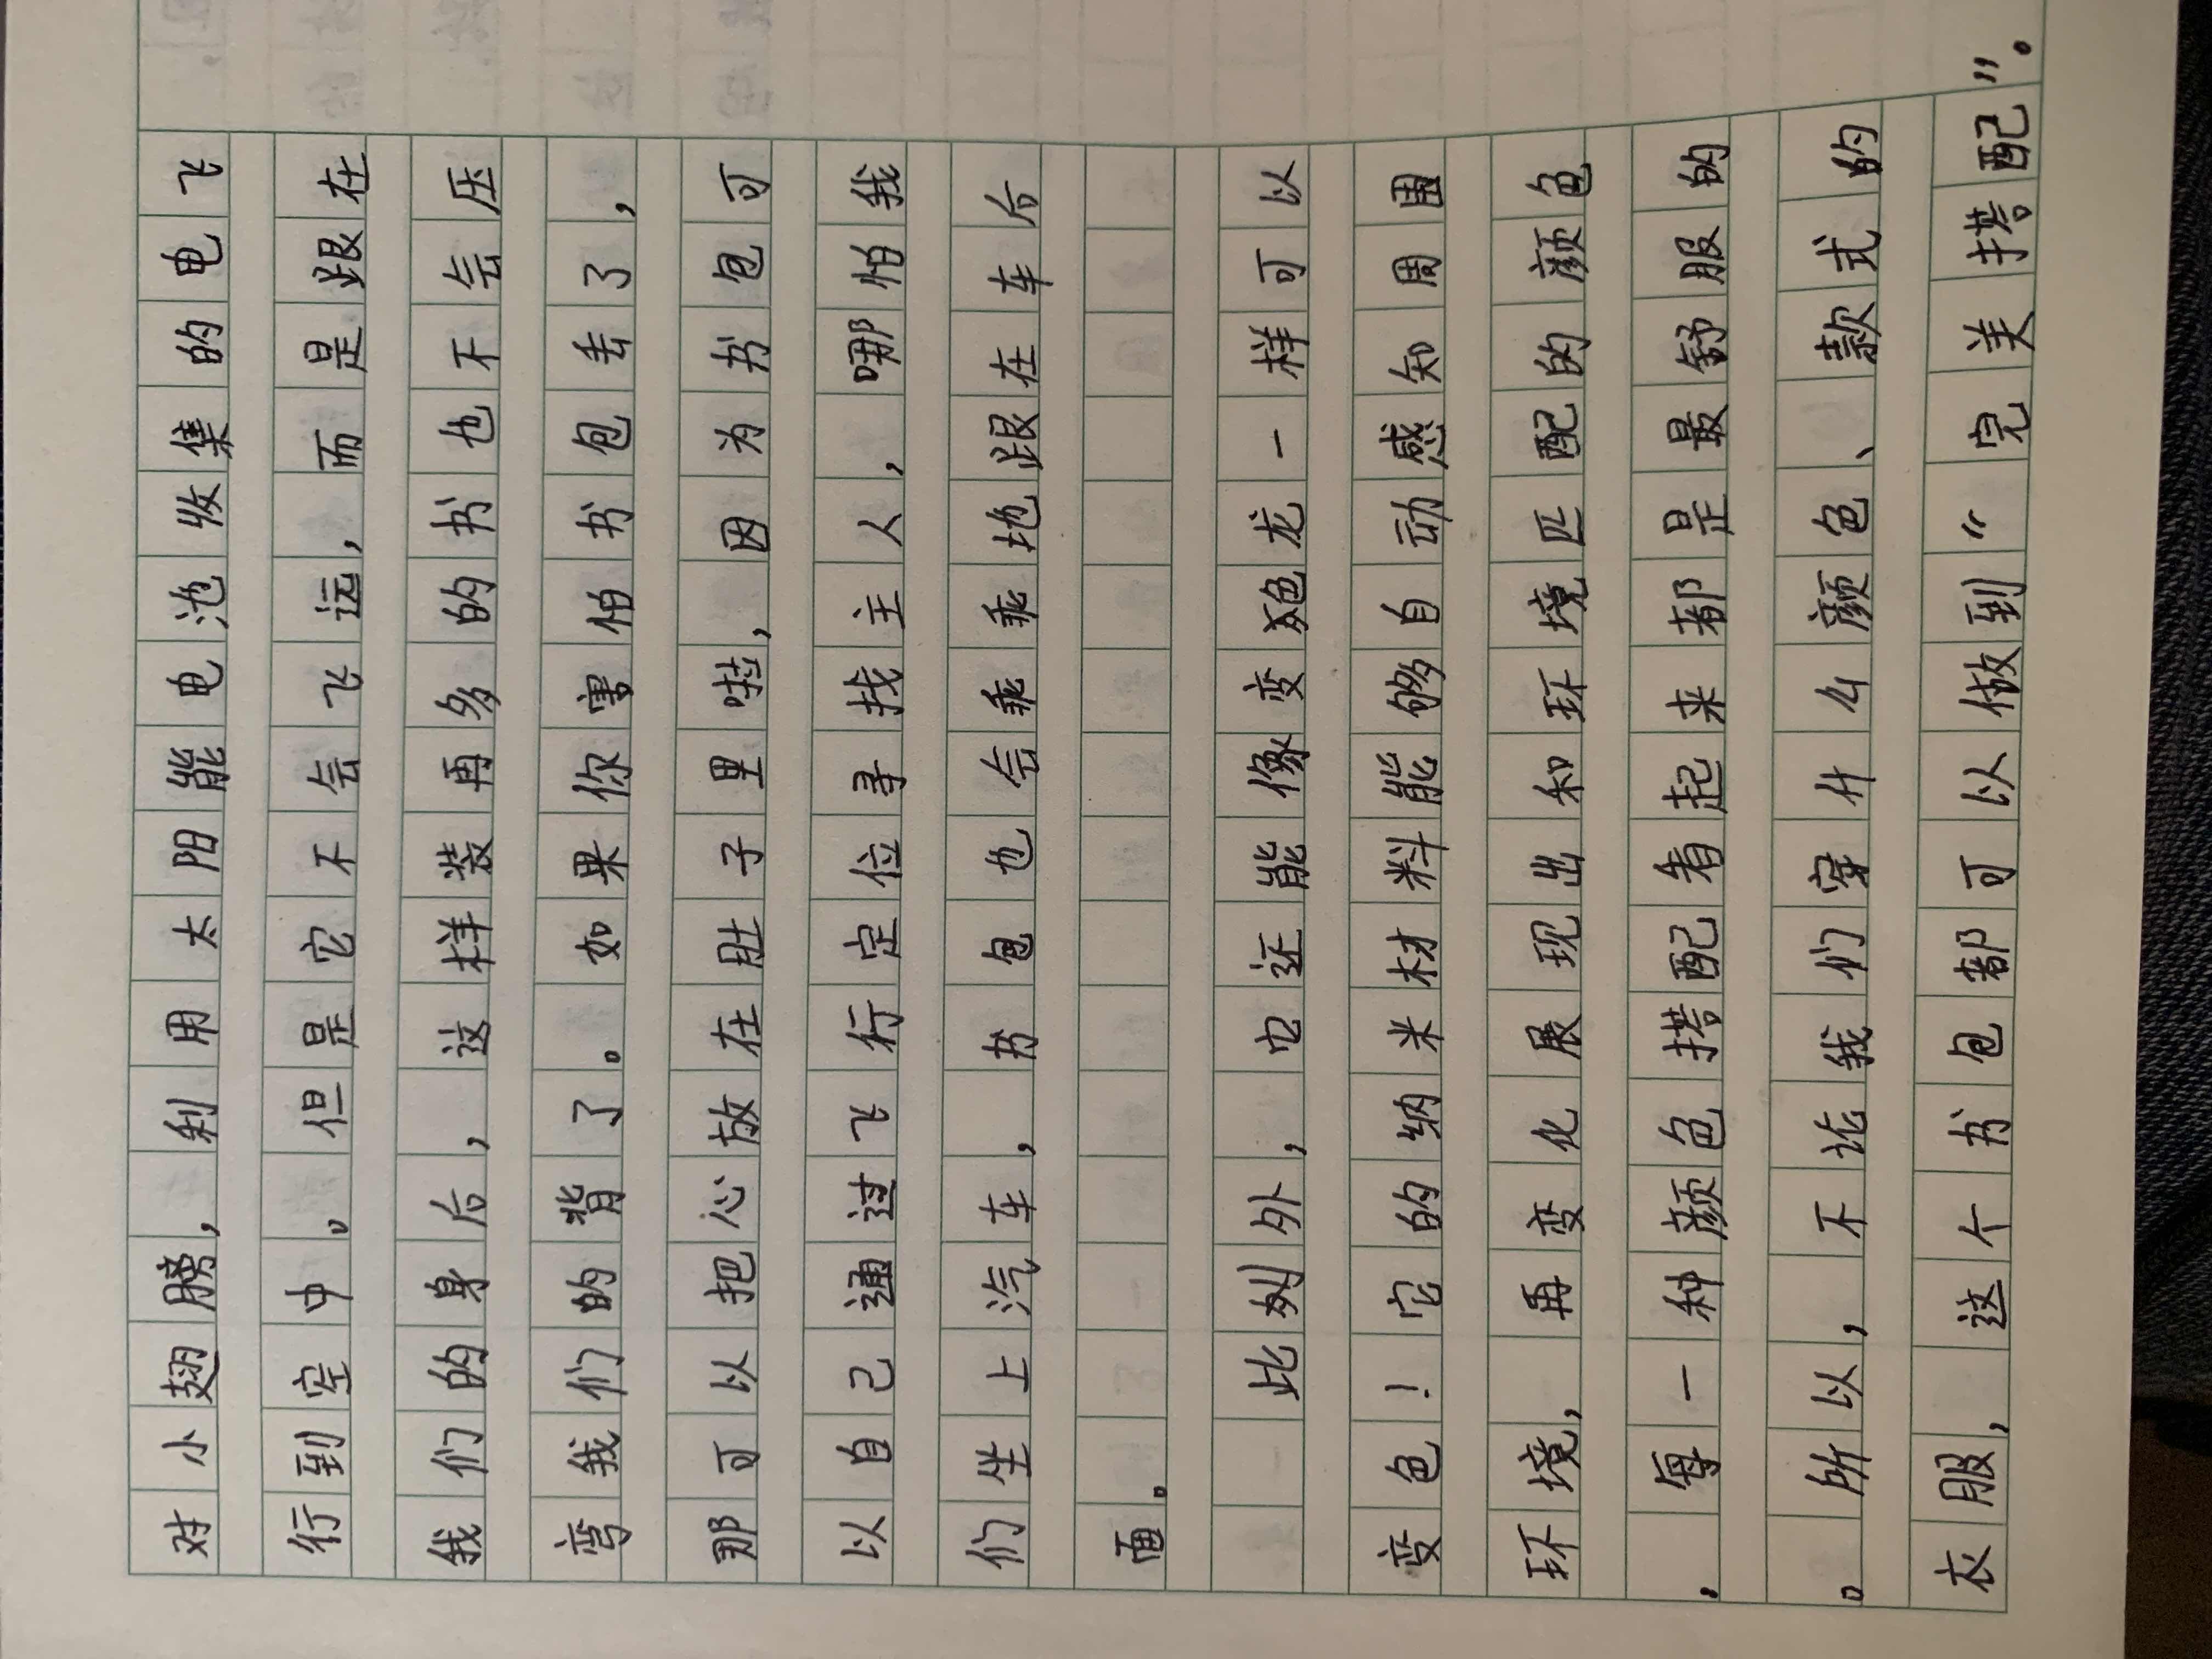 对小翅膀，利用太阳能电池收集的电飞
行到空中。但是它不会飞远，而是跟在
我们的身后，这样装再多的书也不会压
弯我们的背了。如果你害怕书包丢了，
那可以把心放在肚子里啦，因为书包可
以自己通过飞行定位寻找主人，哪怕我
们坐上汽车，书包也会乖乖地跟在车后
面。
此外，它还能像变色龙一样可以
变色！它的纳米材料能够自动感知周围
环境，再变化展现出和环境匹配的颜色
，每一种颜色搭配看起来都是最舒服的
。所以，不论我们穿什么颜色、款式的
衣服，这个书包都可以做到“完美搭配”。